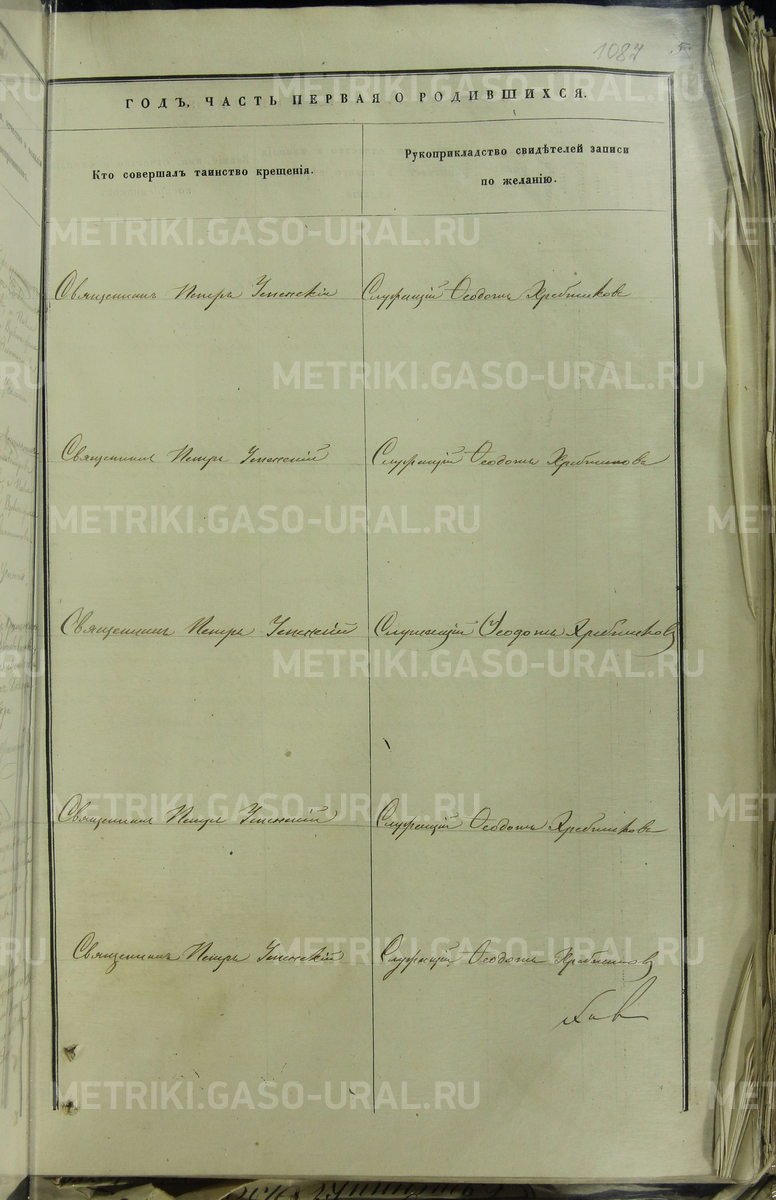 1087
ГОДЪ, ЧАСТЬ ПЕРВАЯ О РОДИВШИХСЯ.
Кто совершалъ таинство крещенія.
Рукоприкладство свидѣтелей записи
по желанію.
METRIKI.GASO-URAL.RU
Священникъ Петръ Успенскій
Служащій Ѳеодотъ Хребтиковъ
METRIKI.GASO-URAL.RU
Священникъ Петръ Успенскій
Служащій Ѳеодотъ Хребтиковъ
METRIKI.GASO-URAL.RU
Священникъ Петръ Успенскій
Служащій Ѳеодотъ Хребтиковъ
METRIKI.GASO-URAL.RU
Священникъ Петръ Успенскій
Служащій Ѳеодотъ Хребтиковъ
METRIKI.GASO-URAL.RU
Священникъ Петръ Успенскій
Служащій Ѳеодотъ Хребтиковъ
METRIKI.GASO-URAL.RU